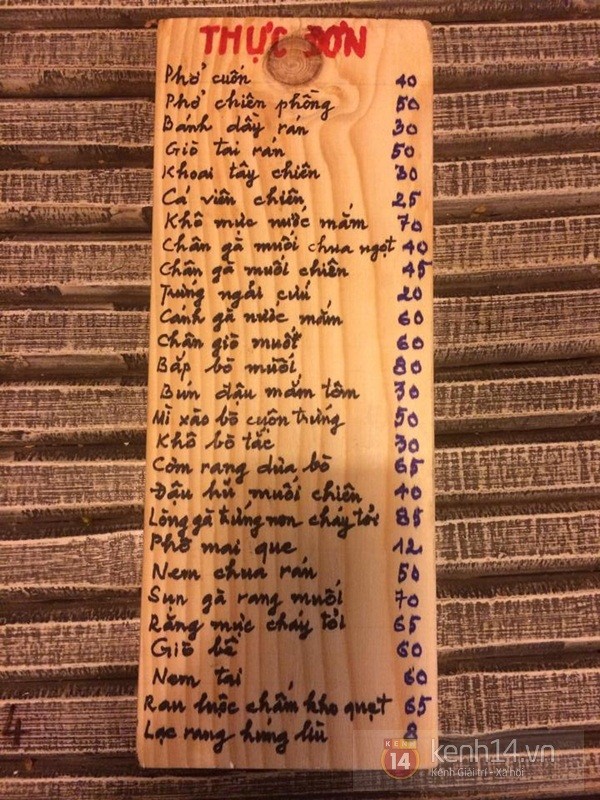 THỰC ĐƠN
Phở cuốn 40
Phở chiên phồng 50
Bánh dầy rán 30
Giò tai rán 50
Khoai tây chiên 30
Cá viên chiên 25
Khô mực nước mắm 70
Chân gà muối chua ngọt 40
Chân gà muối chiên 45
Trứng ngải cứu 20
Cánh gà nước mắm 60
Chân giò muối 60
Bắp bò muối 80
Bún đậu mắm tôm 30
Mì xào bò cuộn trứng 50
Khô bò tắc 30
Cơm rang dưa bò 65
Đậu hũ muối chiên 40
Lòng gà trứng non cháy tỏi 85
Phô mai que 12
Nem chua rán 50
Sụn gà rang muối 70
Răng mực cháy tỏi 65
Giò bê 60
Nem tai 60
Rau luộc chấm kho quẹt 65
Lạc rang húng lìu 8
KENH 14
kenh14.vn
Kênh Giải trí - Xã hội